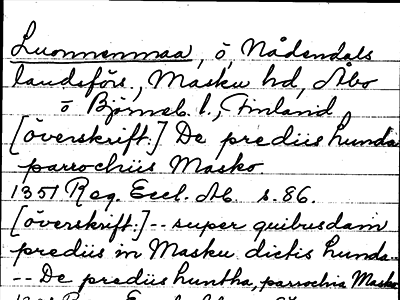 Luonnenmaa, ö, Nådendåls
landsförs., Masku hd, Åbo
o Björneb. l., Finland
[överskrift:] De prediis hunda
parrochiis Masko
1351 Reg. Eccl. Ab. s. 86.
[överskrift:] -- super quibusdam
prediis in Masku dictis hunda..
-- De prediis huntha, parrochia Masko